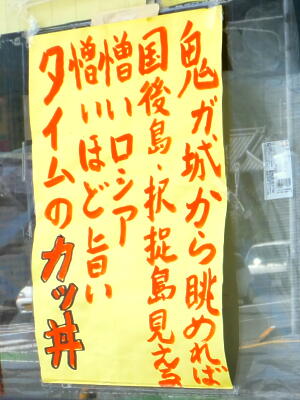 鬼ガ城から眺めれば
国後島・択捉島見える
憎いロシア
憎いほど旨い
タイムのカツ丼